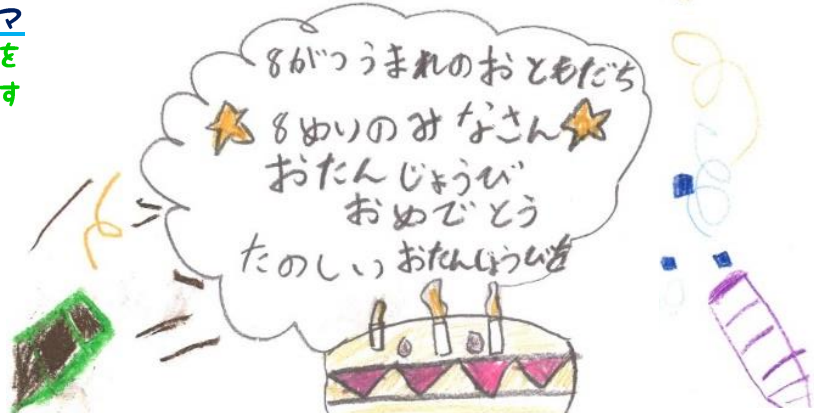 マ
を
す
8がつうまれのおともだち
8めいのみなさん
おたんじょうび
おめでとう
たのしいおたんじょうびを